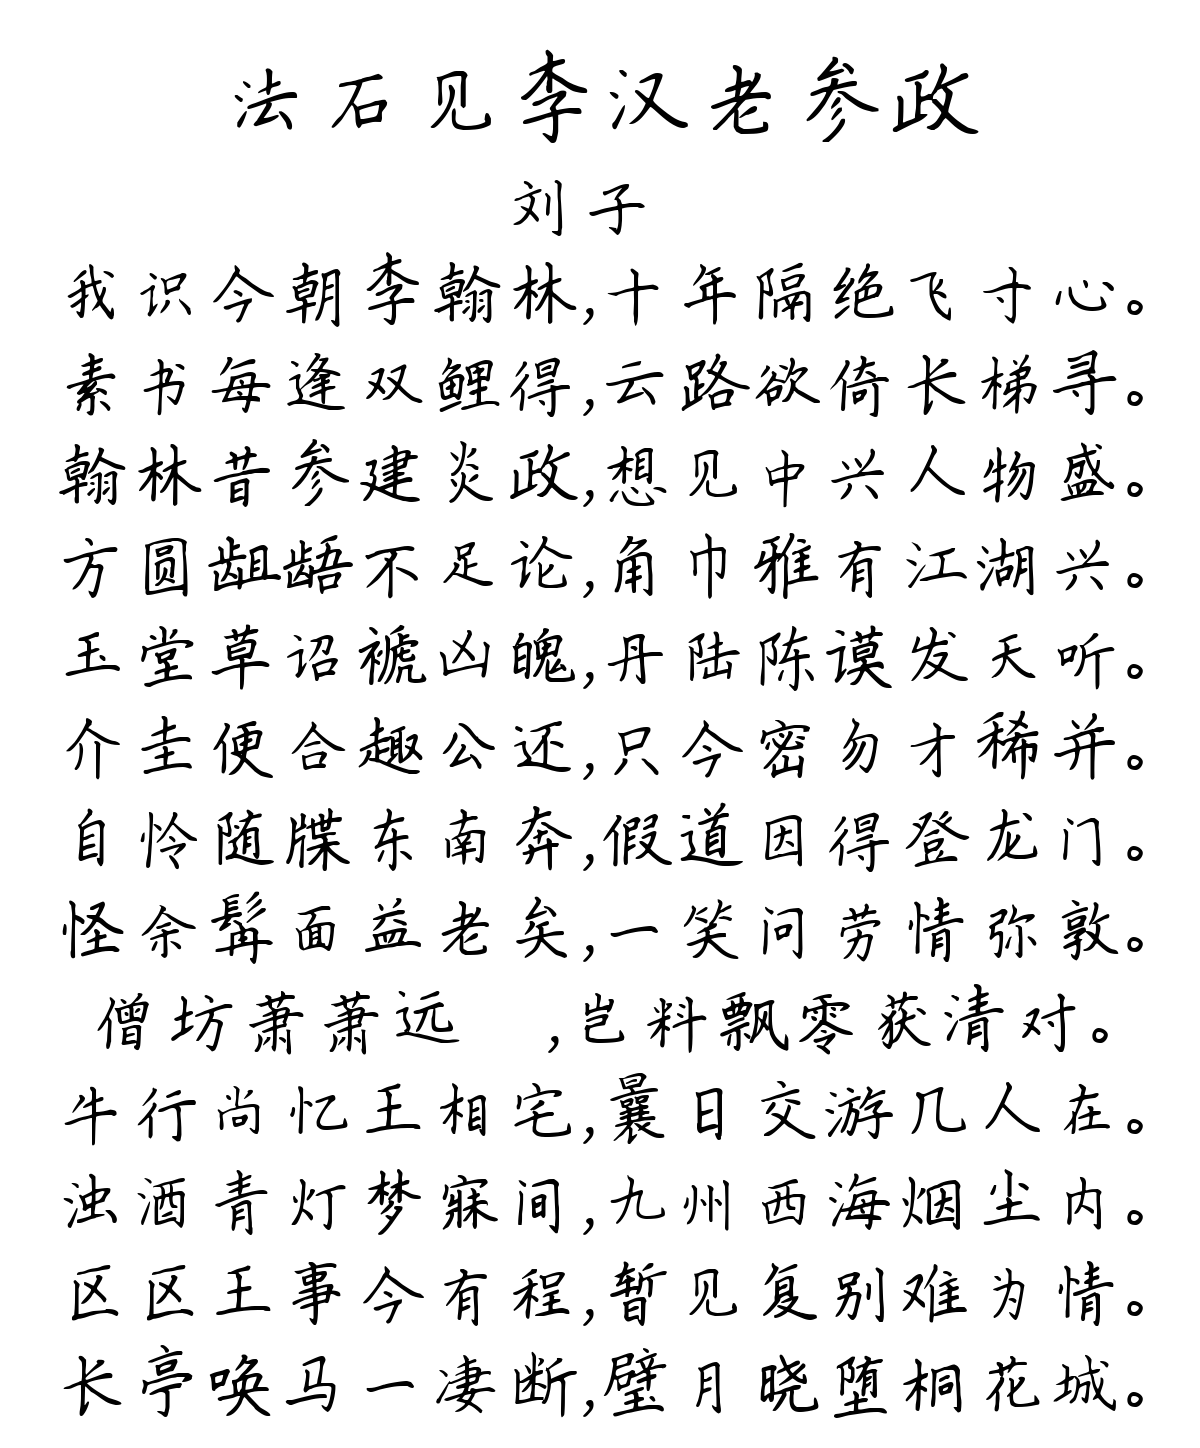 法石见李汉老参政
刘子
我识今朝李翰林,十年隔绝飞寸心。
素书每逢双鲤得,云路欲倚长梯寻。
翰林昔参建炎政,想见中兴人物盛。
方圆龃龉不足论,角巾雅有江湖兴。
玉堂草诏褫凶魄,丹陆陈谟发天听。
介圭便合趣公还,只今密勿才稀并。
自怜随牒东南奔,假道因得登龙门。
怪余髯面益老矣,一笑问劳情弥敦。
僧坊萧萧远 ,岂料飘零获清对。
牛行尚忆王相宅,曩日交游几人在。
浊酒青灯梦寐间,九州西海烟尘内。
区区王事今有程,暂见复别难为情。
长亭唤马一凄断,璧月晓堕桐花城。